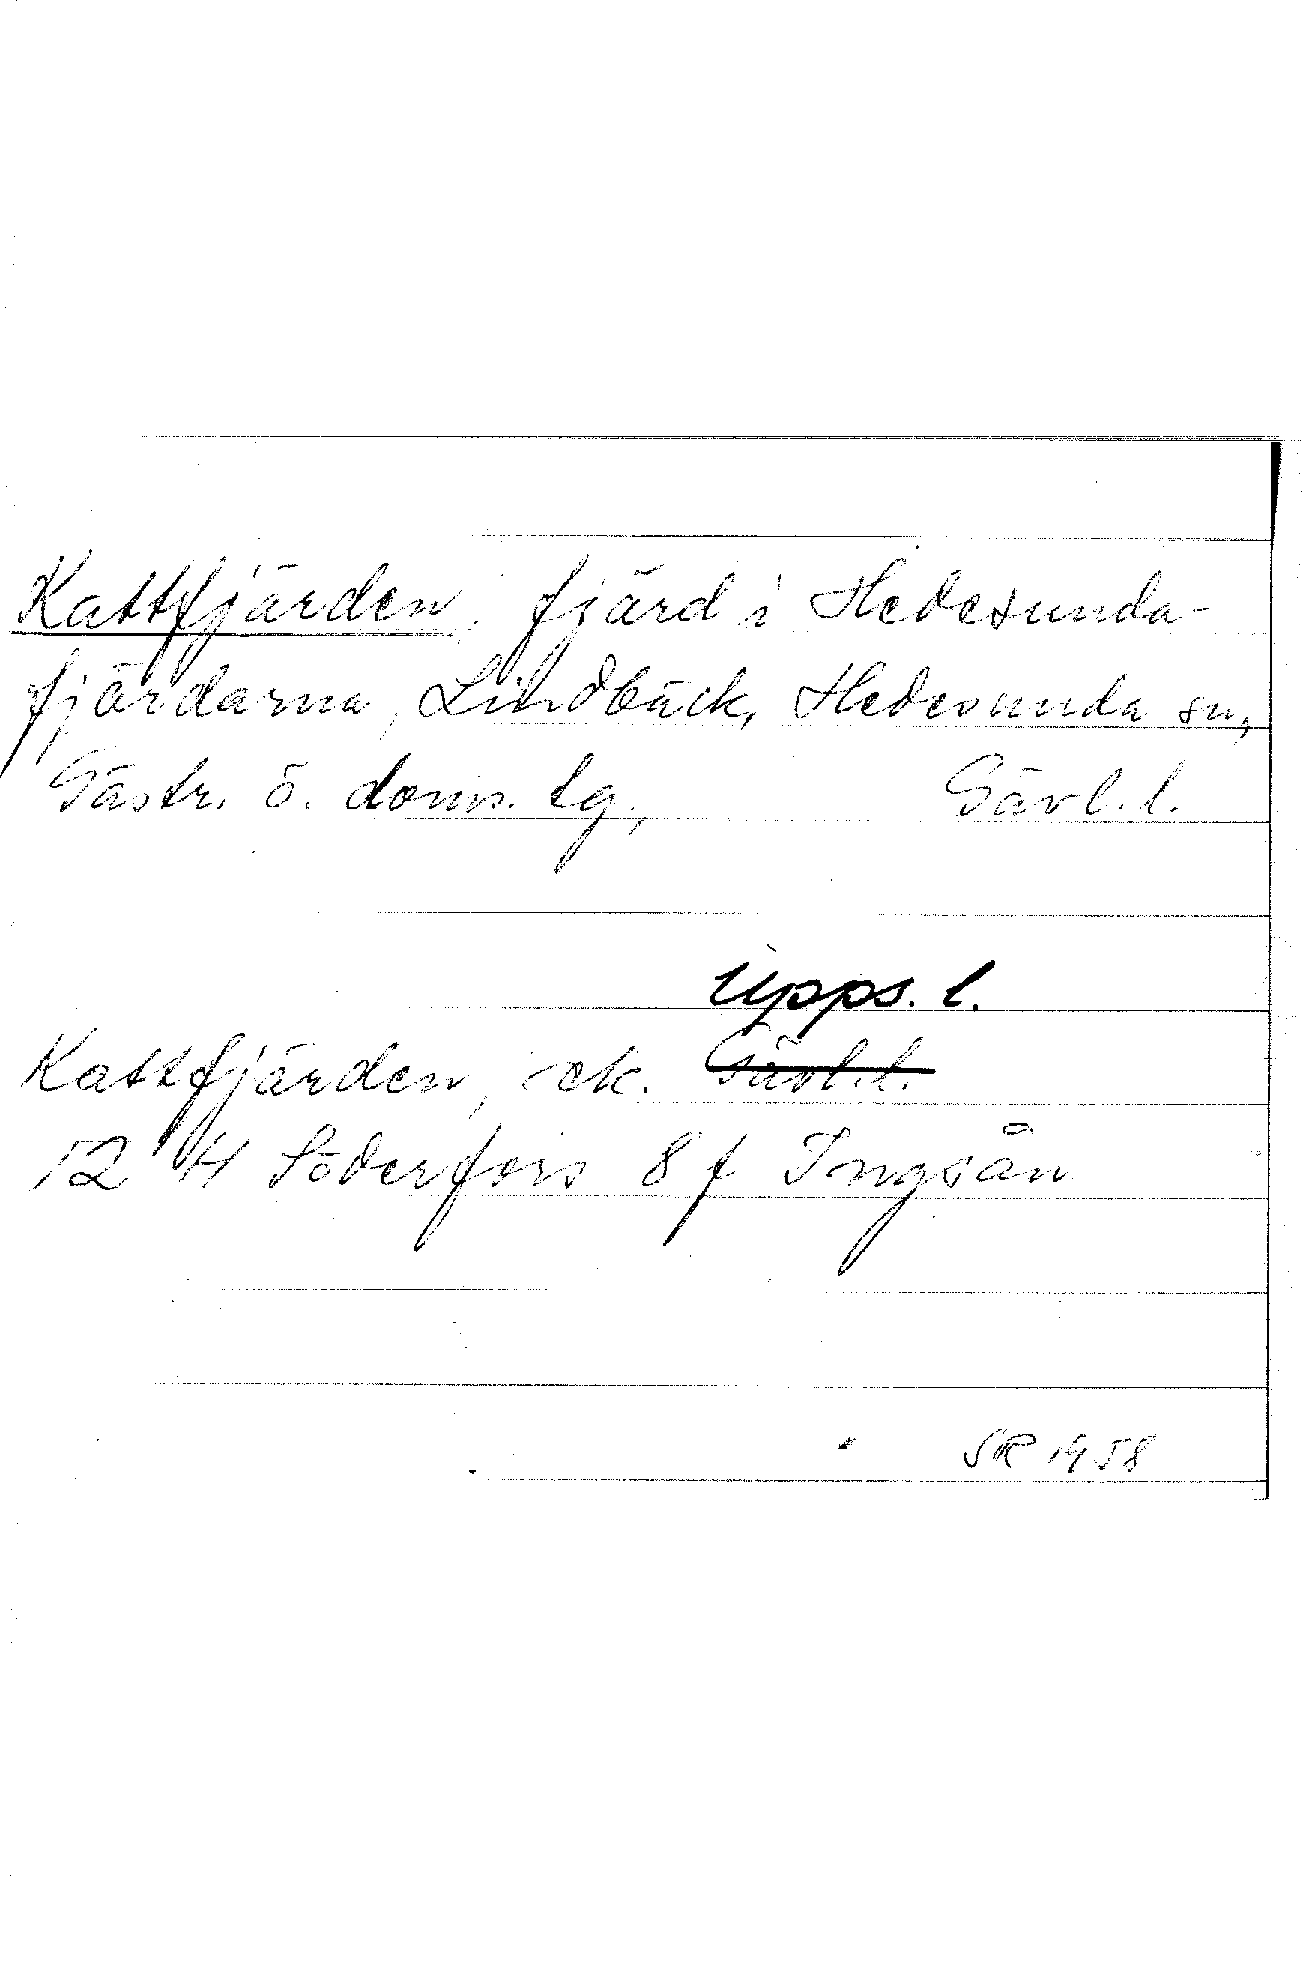 Kattfjärden, fjärd i Hedesunda-
fjärdarna, Lindbäck, Hedesunda sn,
Gästr. ö. doms. tg, Gävl. l.
Upps. l.
Kattfjärden, ek. Gävl. l.
12 H Söderfors 8 f Ingsån
SR 1958